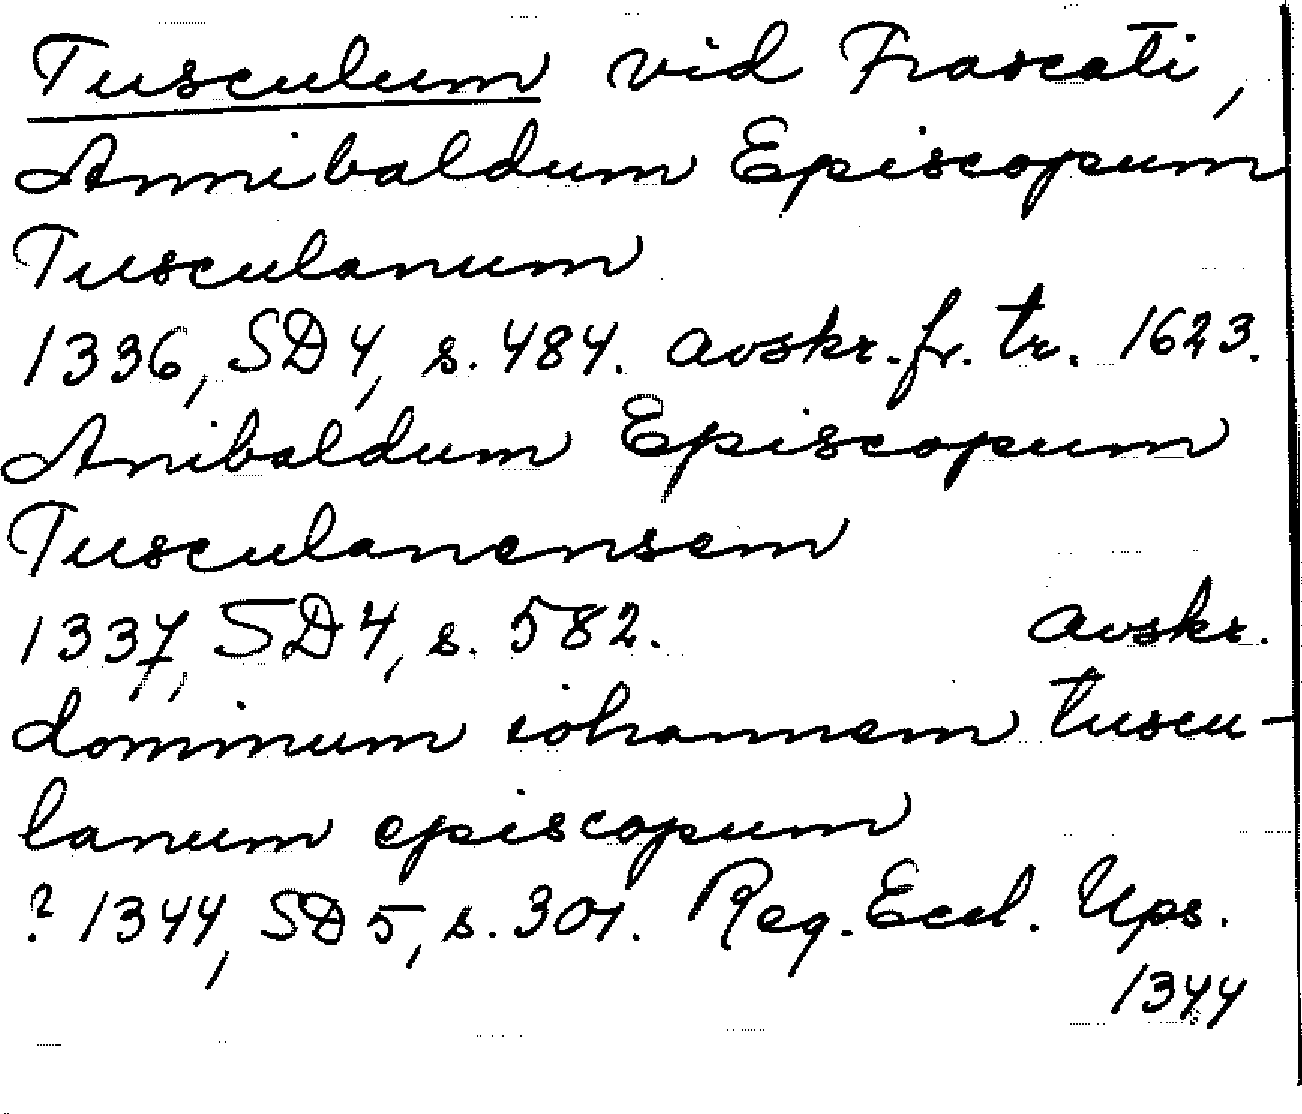 Tusculum vid Frascati,
Annibaldum Episcopum
Tusculanum
1336, SD 4, s. 484. avskr. fr. tr. 1623.
Anibaldum Episcopum
Tusculanensem
1337, SD 4, s. 582. avskr.
dominum iohannem tuscu-
lanum episcopum
? 1344, SD 5, s. 301. Reg. Eccl. Ups.
1344